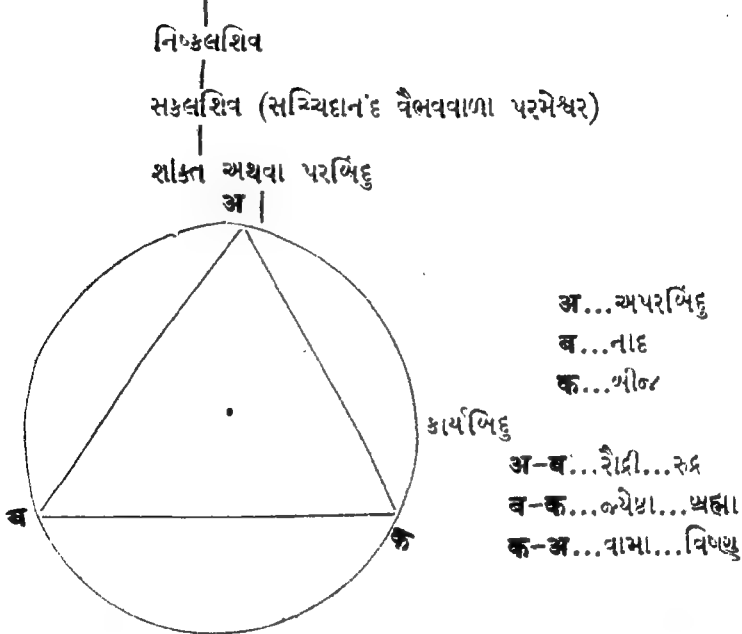 નિષ્કલશિવ
સકલશિવ (સચ્ચિદાનંદ વૈભવવાળા પરમેશ્વર)
શક્તિ અથવા પરબિંદુ
अ
अ...અપરબિંદુ
ब...નાદ
क...બીજ
કાર્યબિંદુ
अ-ब...રૌદ્રી...રુદ્ર
ब-क...જ્યેષ્ઠા...બ્રહ્મા
क-अ...વામા...વિષ્ણુ
ब
क